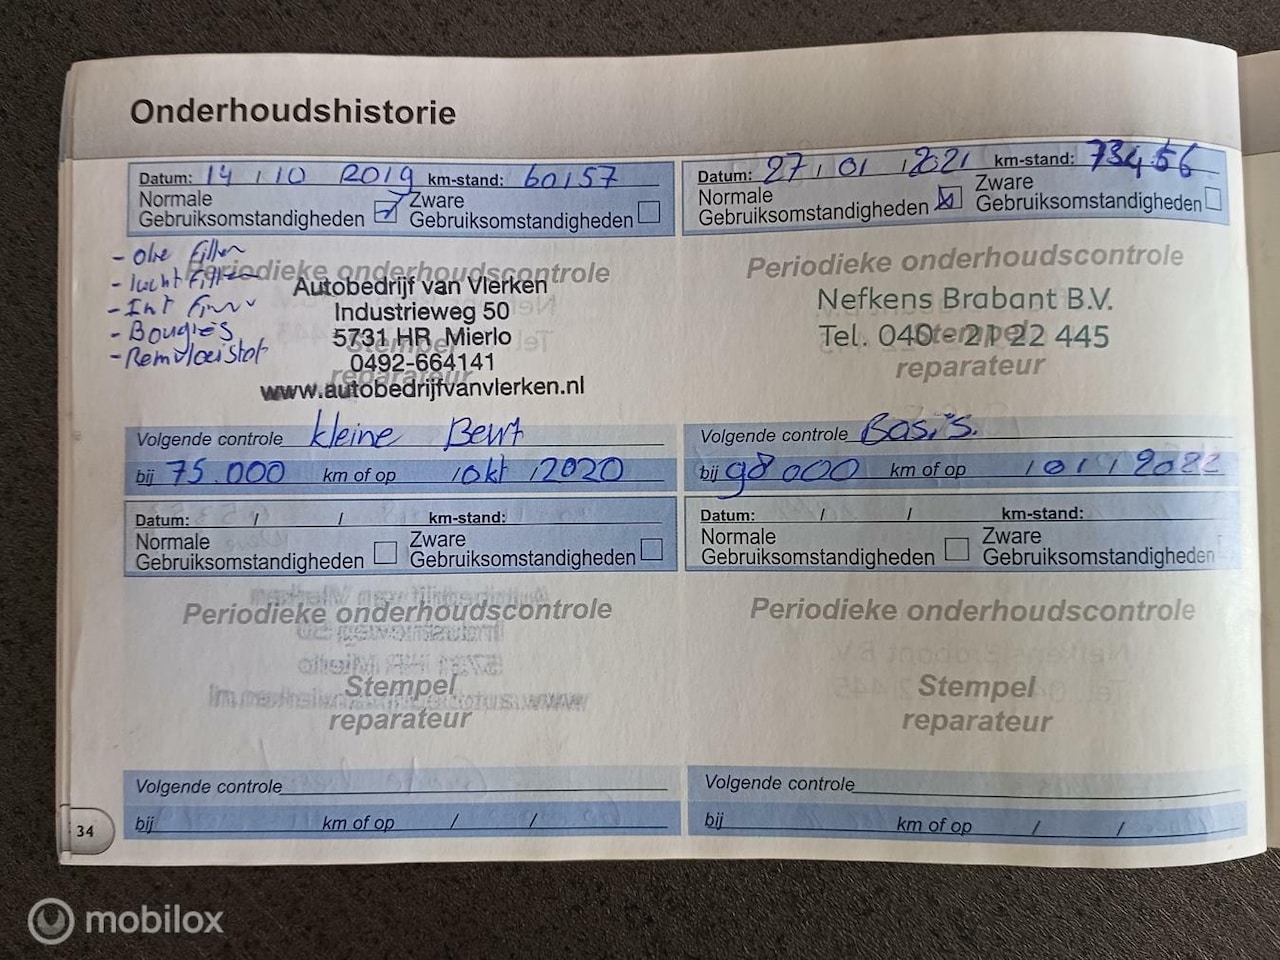 Onderhoudshistorie
Datum: 14 / 10 2019 km-stand: 60157
Normale Gebruiksomstandigheden Zware Gebruiksomstandigheden
- olie Filter
- lucht Filter
- Int
- Bougies
- Remvloeistof
Periodieke onderhoudscontrole
Autobedrijf van Vlerken
Industrieweg 50
5731 HR Mierlo
Stempel
0492-664141
reparateur
www.autobedrijfvanvlerken.nl
Volgende controle kleine Beurt
bij 75.000 km of op / okt / 2020
Datum: 27 / 01 / 2021 km-stand: 73456
Normale Gebruiksomstandigheden Zware Gebruiksomstandigheden
Periodieke onderhoudscontrole
Nefkens Brabant B.V.
Tel. 040 - 21 22 445
Stempel
reparateur
Volgende controle Basis.
bij 98000 km of op / 01 / 2022
Datum: / / km-stand:
Normale Gebruiksomstandigheden Zware Gebruiksomstandigheden
Periodieke onderhoudscontrole
Stempel
reparateur
Volgende controle
bij km of op / /
Datum: / / km-stand:
Normale Gebruiksomstandigheden Zware Gebruiksomstandigheden
Periodieke onderhoudscontrole
Stempel
reparateur
Volgende controle
bij km of op / /
34
mobilox